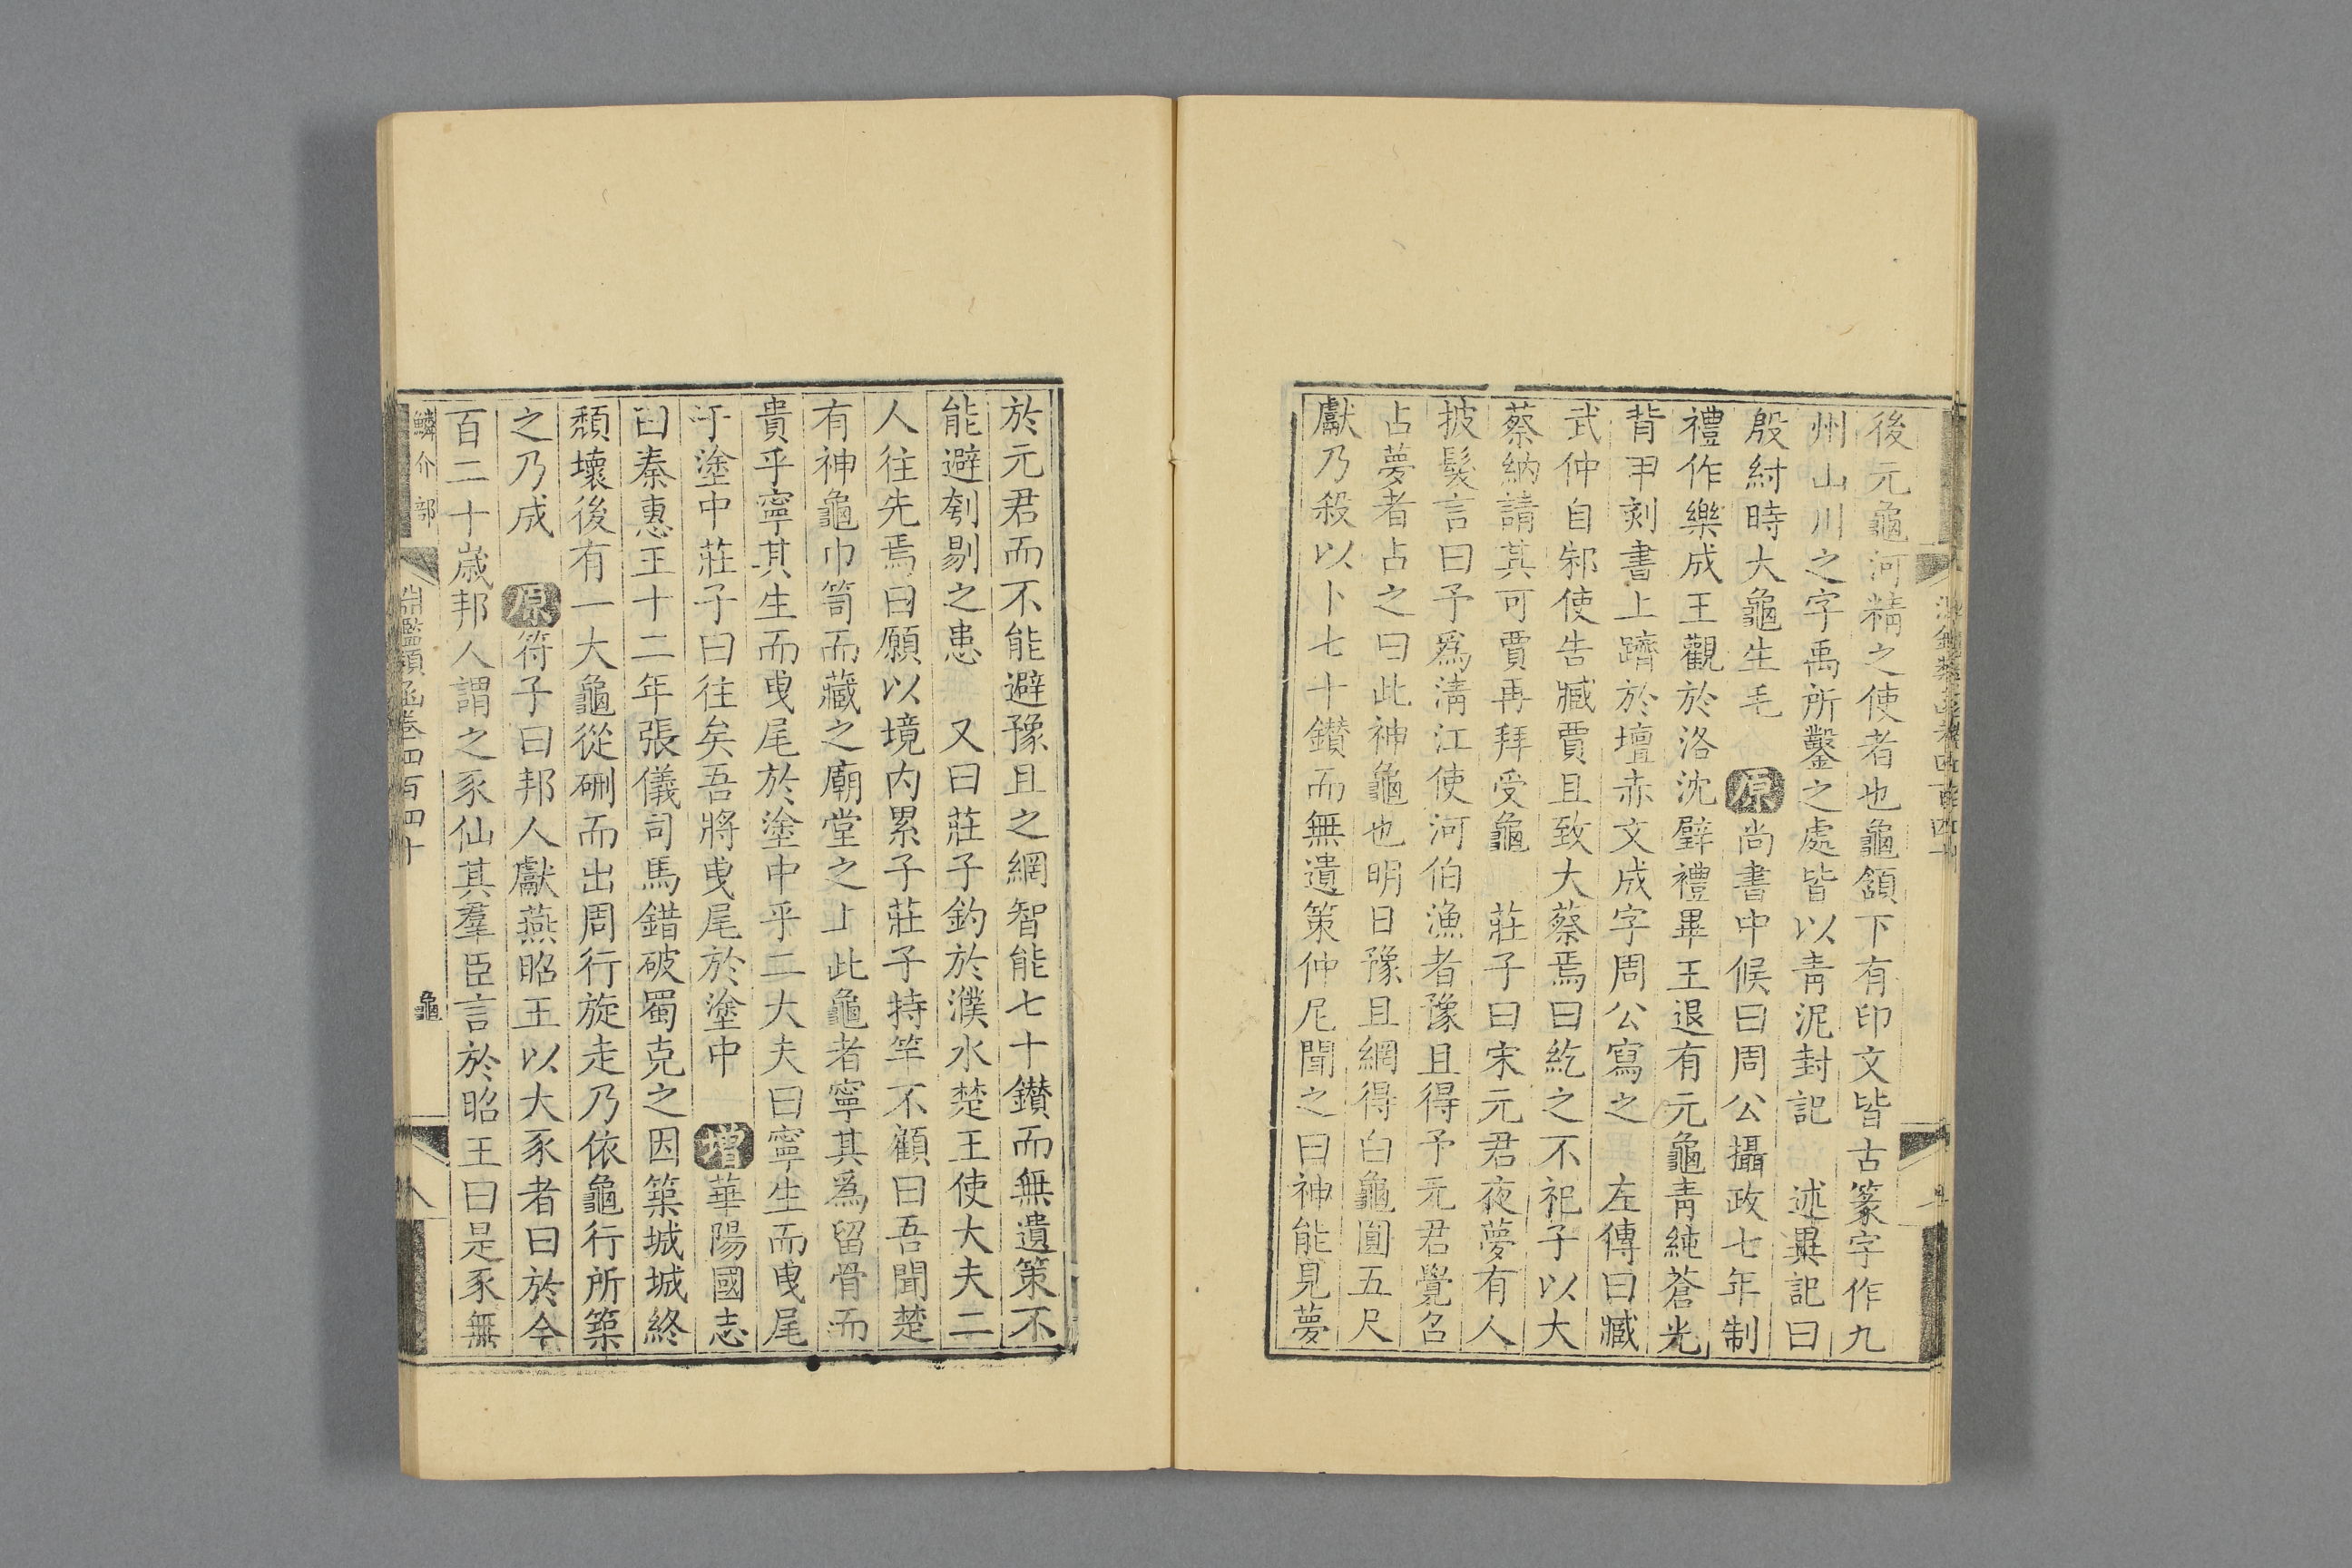 後元龜河精之使者也龜頷下有印文皆古篆字作九
州山川之字禹所鑿之處皆以青泥封記 述異記曰
殷紂時大龜生毛 原 尚書中候曰周公攝政七年制
禮作樂成王觀於洛沈璧禮畢王退有元龜青純蒼光
背甲刻書上躋於壇赤文成字周公寫之 左傳曰臧
武仲自邾使告臧賈且致大蔡焉曰紇之不祀子以大
蔡納請其可賈再拜受龜 莊子曰宋元君夜夢有人
披髮言曰予爲清江使河伯漁者豫且得予元君覺召
占夢者占之曰此神龜也明日豫且網得白龜圓五尺
獻乃殺以卜七十鑚而無遺策仲尼聞之曰神能見夢
於元君而不能避豫且之網智能七十鑚而無遺策不
能避刳剔之患 又曰莊子釣於濮水楚王使大夫二
人往先焉曰願以境内累子莊子持竿不顧曰吾聞楚
有神龜巾笥而藏之廟堂之上此龜者寧其爲留骨而
貴乎寧其生而曳尾於塗中乎二大夫曰寧生而曳尾
于塗中莊子曰往矣吾將曳尾於塗中 增 華陽國志
曰秦惠王十二年張儀司馬錯破蜀克之因築城城終
頽壞後有一大龜從硎而出周行旋走乃依龜行所築
之乃成 原 符子曰邦人獻燕昭王以大豕者曰於今
百二十歳邦人謂之豕仙其羣臣言於昭王曰是豕無
鱗介部 淵鑑類函卷四百四十 龜 八